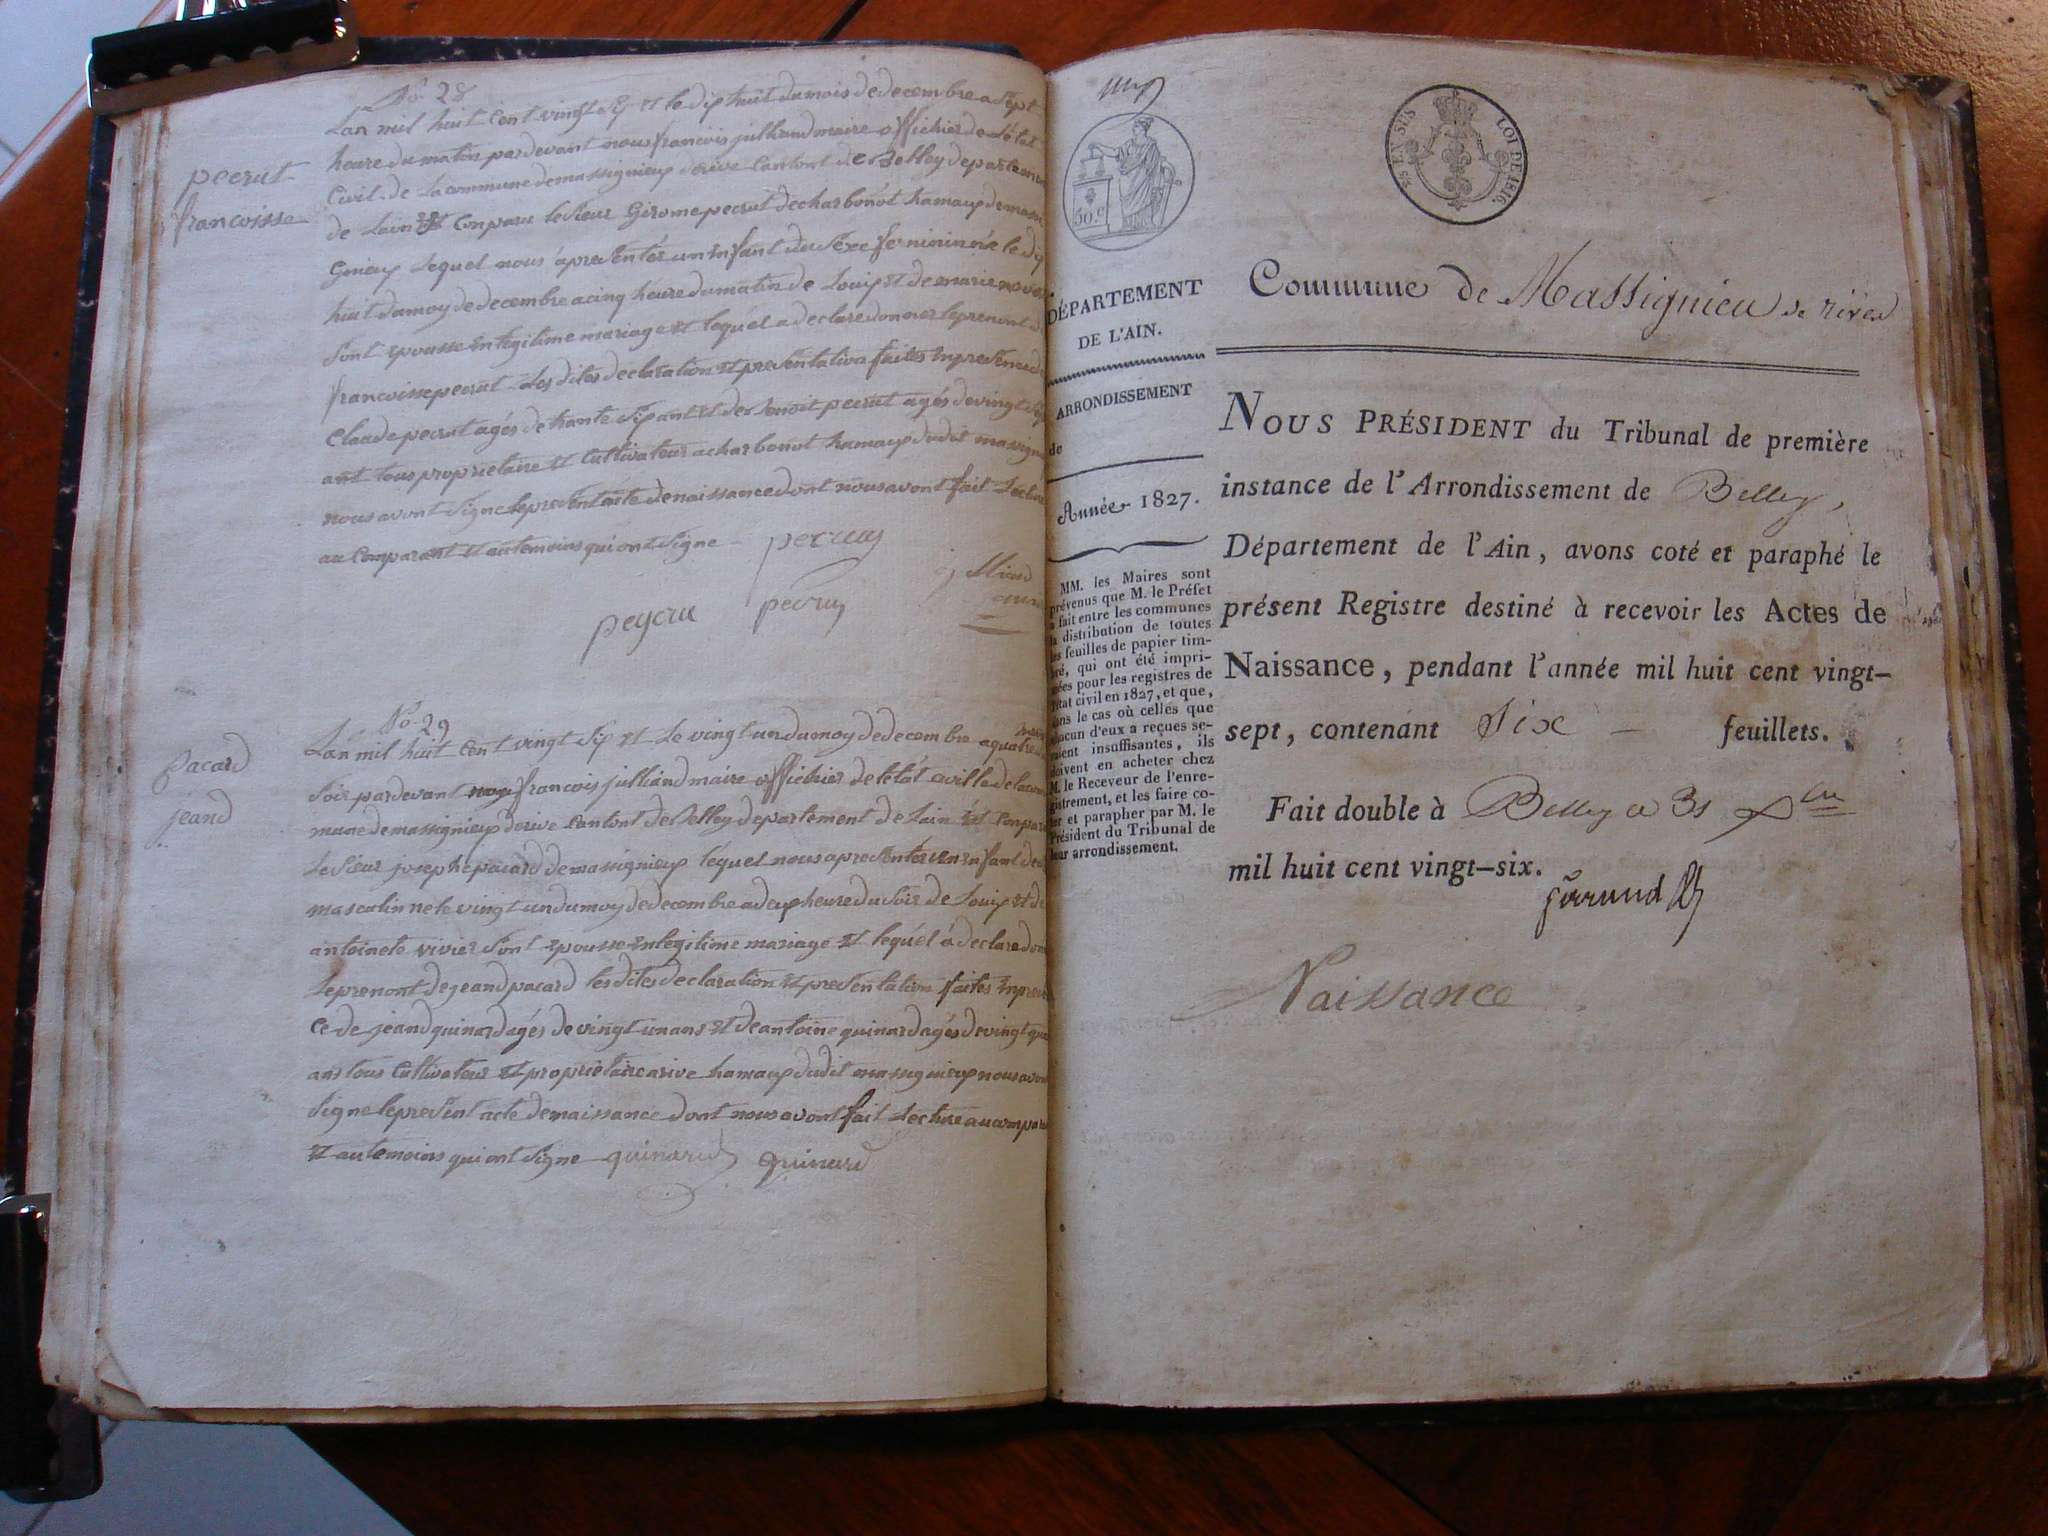 No. 28
Lan mil huit cent vingt six et le dixhuit du mois de decembre a sept
heure du matin pardevant nous francois julliand maire offichier de létat
Civil de la commune de massignieux de rive Cantont de Belley departem
de Lain Est Conparu le sieur Girome pecrut de charbonot hamaux de massi
Gnieux Lequel nous á presenter un Enfant du sexe feminin née le dix
huit du moy de decembre a cinq heure du matin de Louix et de marie
sont Epousse En legitime mariage et lequel a declare donner le prenont de
francoisse pecrut Les dites declaration et presentation faites En presence de
Claude pecrut agés de trante six ant et de Benoit pecrut agés de vingt
ant tous proprietaire et Cultivateur a charbonot hamaux dudit massigni
nous avont Signe le present acte de naissance dont nous avont fait Lecture
au Comparant et au temoins qui ont Signe
pecrut
francoisse
peycru
No. 29
Lan mil huit Cent vingt six et Le vingt un du moy de decembre a quatre heure
Soir pardevant nous francois julliand maire offichier de létat civille de la com
mune de massignieux de rive Cantont de Belley departement de Lain Est Conparu
Le Sieur josephe pacard de massignieux léquel nous a presenter un Enfant de
masculin ne le vingt un du moy de decembre a deux heure du Soir de Louix et de
antoinete vivier Sont Epousse En legitime mariage et lequel á declare donner
Le prenont de jeand pacard les dites declaration et presentation faites En presen
Ce de jeand quinard agés de vingt un ans et de antoine quinard agés de vingt qua
ans tous Cultivateur et proprietaire a rive hamaux dudit massignieux nous avont
Signe le present acte de naissance dont nous avont fait Lecture au compara
Et au temoins qui ont Signe quinard quinard
Pacard
jeand
50.c
EN SUS
LOI DE 1816.
DÉPARTEMENT
DE L'AIN.
ARRONDISSEMENT
de
Année 1827.
MM. les Maires sont
prévenus que M. le Préfet
a fait entre les communes
la distribution de toutes
les feuilles de papier tim-
bré, qui ont été impri-
mées pour les registres de
l'état civil en 1827, et que,
dans le cas où celles que
chacun d'eux a reçues se-
raient insuffisantes, ils
doivent en acheter chez
M. le Receveur de l'enre-
gistrement, et les faire co-
ter et parapher par M. le
Président du Tribunal de
leur arrondissement.
Commune de Massignieu de rives
NOUS PRÉSIDENT du Tribunal de première
instance de l'Arrondissement de Belley,
Département de l'Ain, avons coté et paraphé le
présent Registre destiné à recevoir les Actes de
Naissance, pendant l'année mil huit cent vingt-
sept, contenant Six feuillets.
Fait double à Belley ce 31 Xbre
mil huit cent vingt-six.
Naissance